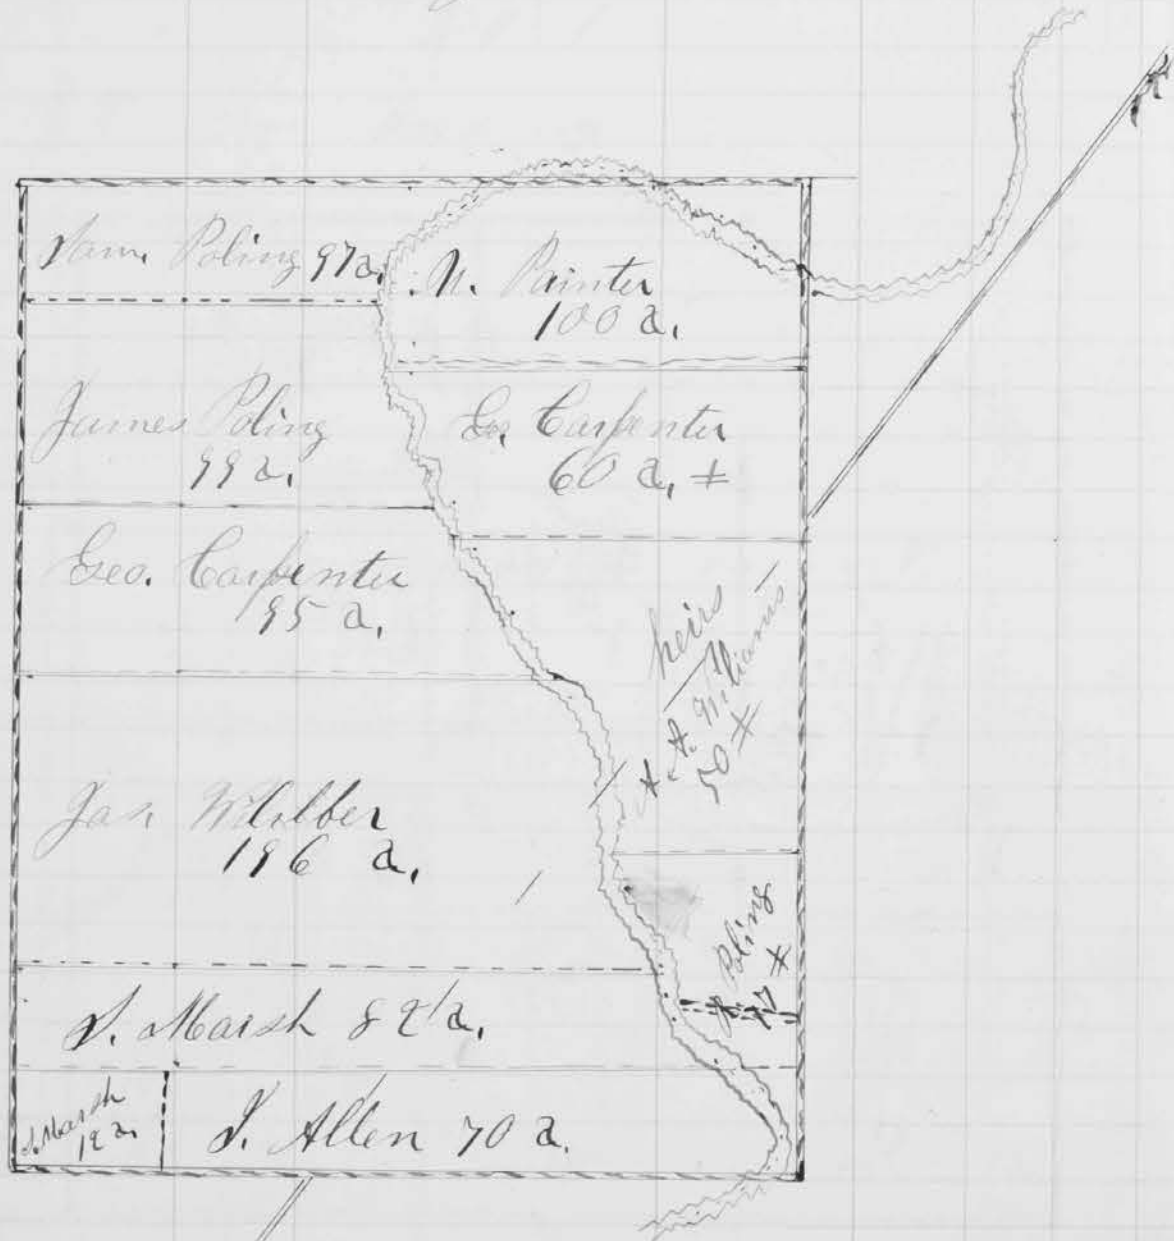 Sam. Poling 97 a.
N. Painter
100 a.
James Poling
99 a.
Geo. Carpenter
60 a. ±
Geo. Carpenter
95 a.
heirs
A. A. Williams
50 ±
Jas. Wilber
196 a.
Poling
S. Marsh 82 a.
S. Marsh
12 a.
S. Allen 70 a.
R R